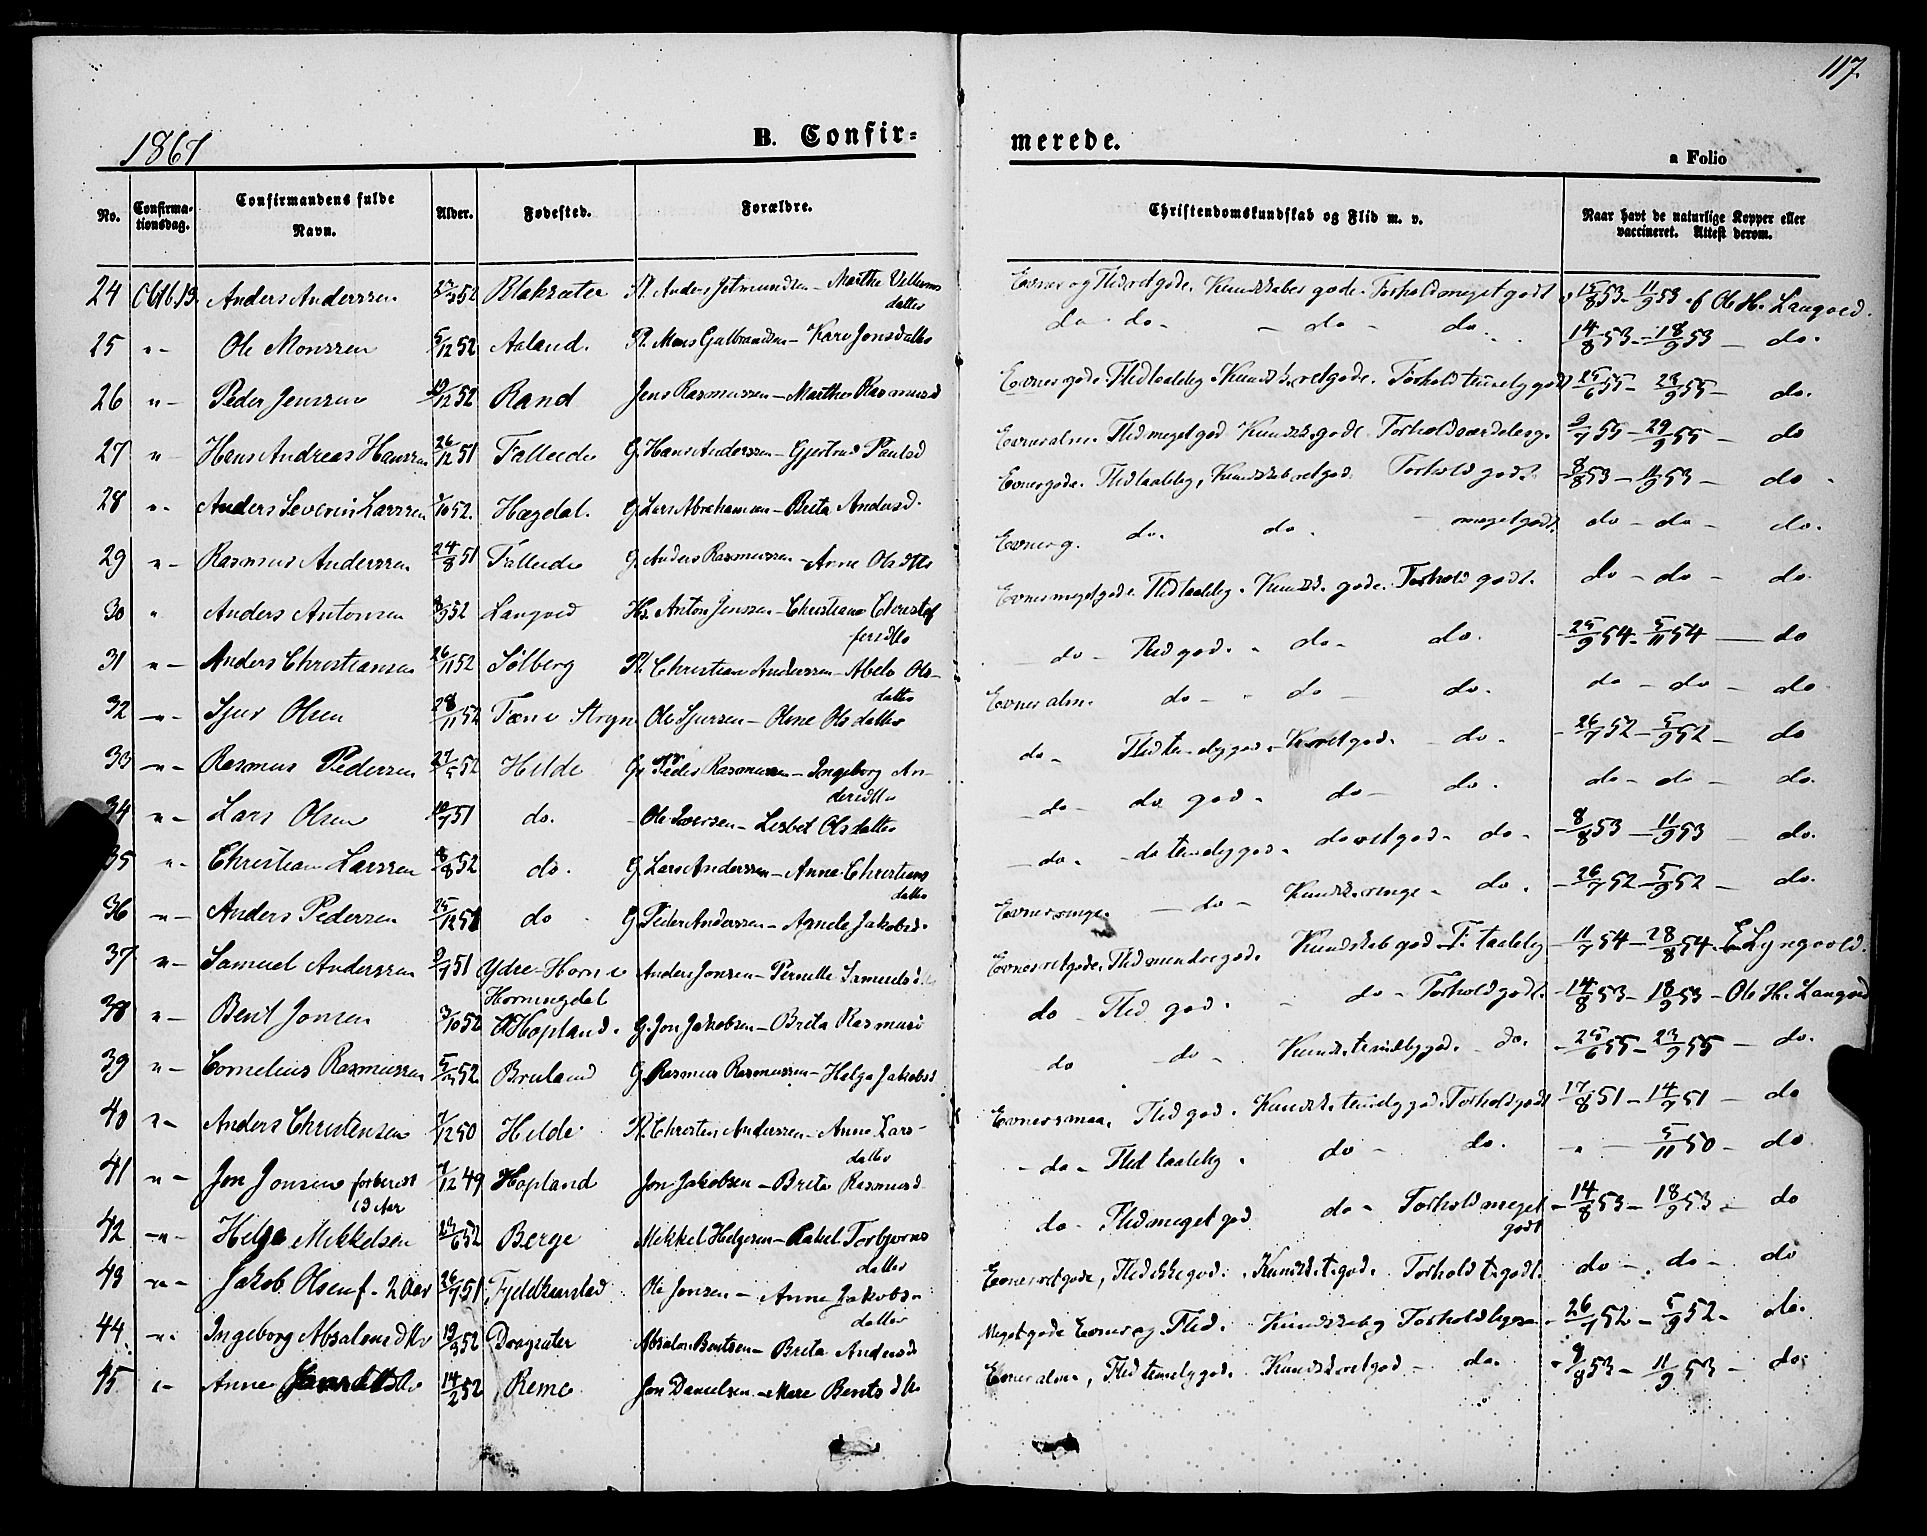 117.
1867
B. Confir=
merede.
a Folio
No.
Confirma-
tionsdag.
Confirmandens fulde
Navn.
Alder.
Fødested.
Forældre.
Christendomskundskab og Flid m. v.
Naar havt de naturlige Kopper eller
vaccineret. Attest derom.
24 Octb. 13. Anders Anderssen 52 Blaksæter Anders Jetmundsen - Marthe Villums
datter
Evner og Flid retgode. Kundskaber gode. Forhold meget godt 15/8 53 - 11/9 53 af Ole H. Langved.
25 " - Ole Monssen 5/12 52 Aaland. Pl. Mons Gulbrandsen - Kari Jonsdatter
do - do - - do - do 14/8 53 - 18/9 53 - do.
26 " - Peder Jenssen 12 52 Rand Jens Rasmussen - Marthe Rasmusd
Evner gode. Flid taalelig. Kundsk. retgode. Forhold temelig godt 25/6 55 - 23/9 55 - do.
27 " Hans Andreas Hanssen 26/12 51 Falleide G. Hans Anderssen - Gjertrud Paulsd
Evner alm. Flid meget god Kundsk. gode Forhold særdeles g. 2/7 55 - 29/9 55 - do
28 " - Anders Severin Larssen /10 52. Hægdal. G. Lars Abrahamsen - Brita Andersd.
Evner gode. Flid taalelig, Kundskab retgod. Forhold godt. 8/8 53 - 11/9 53 - do -
29 " - Rasmus Anderssen 24/8 51 Falleide G. Anders Rasmussen - Anne Olsdtr
Evner g. do. do. - meget godt. do - do - do.
30 " Anders Antonsen 52 Langved Hs. Anton Jenssen - Christiane Christof
fersdtr
Evner meget gode. Flid taalelig. Kundsk. gode. Forhold godt. do - do - do.
31 " - Anders Christiansen 26/11 52 Sølberg Pl. Christian Anderssen - Abelo Ols-
datter
- do - Flid god. " do - do. 25/9 54 - 5/11 54 - do
32 - " - Sjur Olsen 28/11 52 Tæne Stryn Ole Sjurssen - Oline Olsdatter
Evner alm. do - " do - do. do - do - do
33 - " - Rasmus Pedersen 27/5 52 Helde G. Peder Rasmussen - Ingeborg An-
dersdtr
do - Flid temelig god - K. retgod. - do - 26/7 52 - 5/9 52 - do
34 " - Lars Olsen 7 51 do. Ole Iversen - Lisbet Olsdatter
- do - do god - do - do. do - do - do.
35 " - Christian Larssen 8/8 52 do. G. Lars Anderssen - Anne Christians
datter
- do - - do temelig god - do retgod - do - 8/8 53 - 11/9 53 - do.
36 - " - Anders Pederssen 25/12 51 do G Peder Anderssen - Agnete Jakobsd.
Evner ringe. - do - Kundsk. ringe - do. 26/7 52 - 5/9 52 - do.
37 " - Samuel Anderssen 9/7 51 Ydre-Horne Anders Jonsen - Pernille Samuelsd
Evner retgode. Flid mindre god. Kundskab god - F. taalelig - 11/7 54 - 28/8 54 - E Lyngvold.
38 " - Bent Jonsen 3/10 52 Horningdal
Hopland. G. Jon Jakobsen - Brita Rasmusd
do - Flid god. - do - Forhold godt. - 14/8 53 - 18/9 53 - Ole H. Langved
39 " - Cornelius Rasmussen 52 Bruland G. Rasmus Rasmussen - Helga Jakobsd
do - do - Kundsk. temelig god. - do. 25/6 55 - 23/9 55 - do.
40 " - Anders Christensen /12 50 Helde Pl. Christen Anderssen - Anne Lars-
datter
Evner smaa. Flid god. Kundsk. temelig god. Forhold godt 17/8 51 - 14/9 51 - do
41 " - Jon Jonsen forberedt
12 49 Hopland Jon Jakobsen - Brita Rasmusd
- do - Flid taalelig. do - do. " - 5/11 50 - do
42 - " - Helge Mikkelsen 23/6 52 Berge Mikkel Helgesen - Rakel Torbjørns
datter
do - Flid meget god do - Forhold meget
godt - 14/8 53 - 18/9 53 - do
43 - " - Jakob Olsen f. 2 Aar 26/7 51 Fjeldkarstad Ole Jonsen - Anne Jakobs-
datter
Evner retgode, Flid ikke god. Kundsk. t. god. Forhold t. godt. do - do - do
44 - " - Ingeborg Absalonsdtr 19/9 52 Dragsæter Absalon Bentsen - Brita Andersd
Meget gode Evner og Flid. Kundskab og Forhold ligesaa - 26/7 52 - 5/9 52 - do.
45 " - Anne 14/2 52 Reme Jon Danielsen - Mare Bentsdtr
Evner alm., Flid temelig god. Kundsk. retgod - do. - 8/8 53 - 11/9 53 - do.